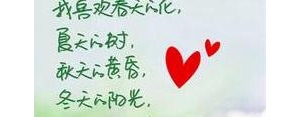 我喜欢春天的花,
夏天的树,
秋天的黄昏,
冬天的阳光,